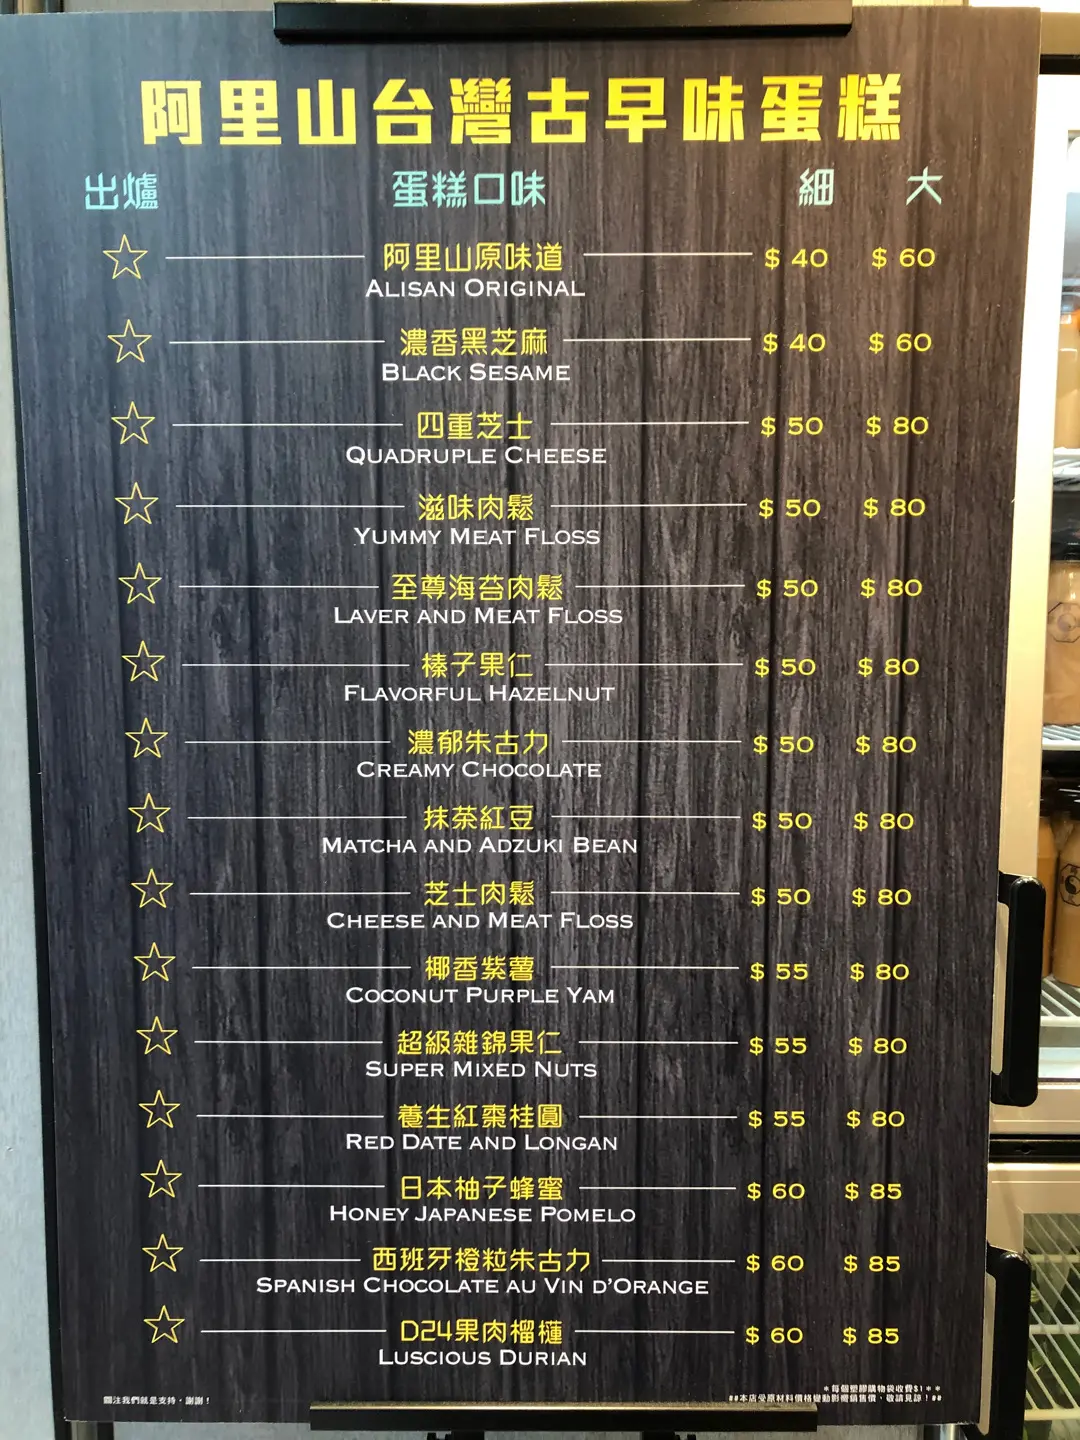 阿里山台灣古早味蛋糕
出爐 蛋糕口味 細 大
☆ 阿里山原味道 $ 40 $ 60
ALISAN ORIGINAL
☆ 濃香黑芝麻 $ 40 $ 60
BLACK SESAME
☆ 四重芝士 $ 50 $ 80
QUADRUPLE CHEESE
☆ 滋味肉鬆 $ 50 $ 80
YUMMY MEAT FLOSS
☆ 至尊海苔肉鬆 $ 50 $ 80
LAVER AND MEAT FLOSS
☆ 榛子果仁 $ 50 $ 80
FLAVORFUL HAZELNUT
☆ 濃郁朱古力 $ 50 $ 80
CREAMY CHOCOLATE
☆ 抹茶紅豆 $ 50 $ 80
MATCHA AND ADZUKI BEAN
☆ 芝士肉鬆 $ 50 $ 80
CHEESE AND MEAT FLOSS
☆ 椰香紫薯 $ 55 $ 80
COCONUT PURPLE YAM
☆ 超級雜錦果仁 $ 55 $ 80
SUPER MIXED NUTS
☆ 養生紅棗桂圓 $ 55 $ 80
RED DATE AND LONGAN
☆ 日本柚子蜂蜜 $ 60 $ 85
HONEY JAPANESE POMELO
☆ 西班牙橙粒朱古力 $ 60 $ 85
SPANISH CHOCOLATE AU VIN D'ORANGE
☆ D24果肉榴槤 $ 60 $ 85
LUSCIOUS DURIAN
*每個塑膠購物袋收費$1**
關注我們就是支持，謝謝！ ##本店受原材料價格變動影響銷售價，敬請見諒！##